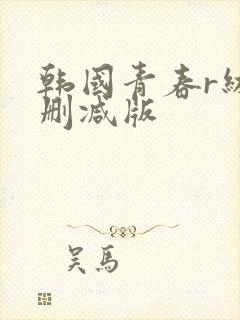 韩國青春r级
删减版
吴馬